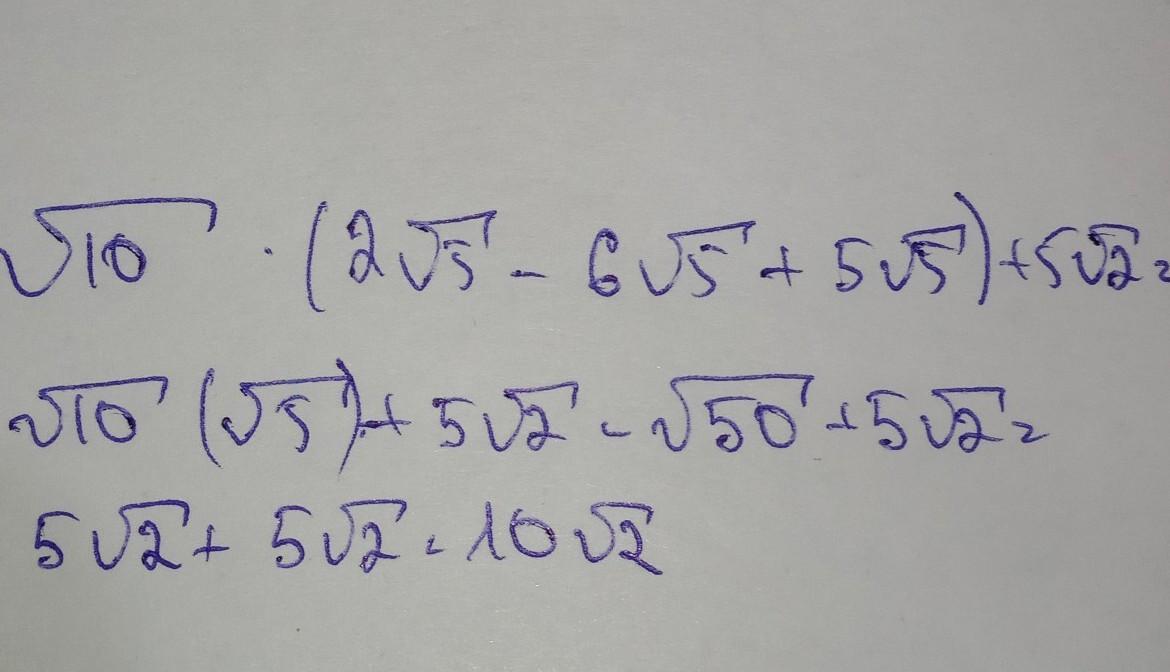 √10 · (2√5 - 6√5 + 5√5) + 5√2 =
√10 (√5) + 5√2 = √50 + 5√2 =
5√2 + 5√2 = 10√2